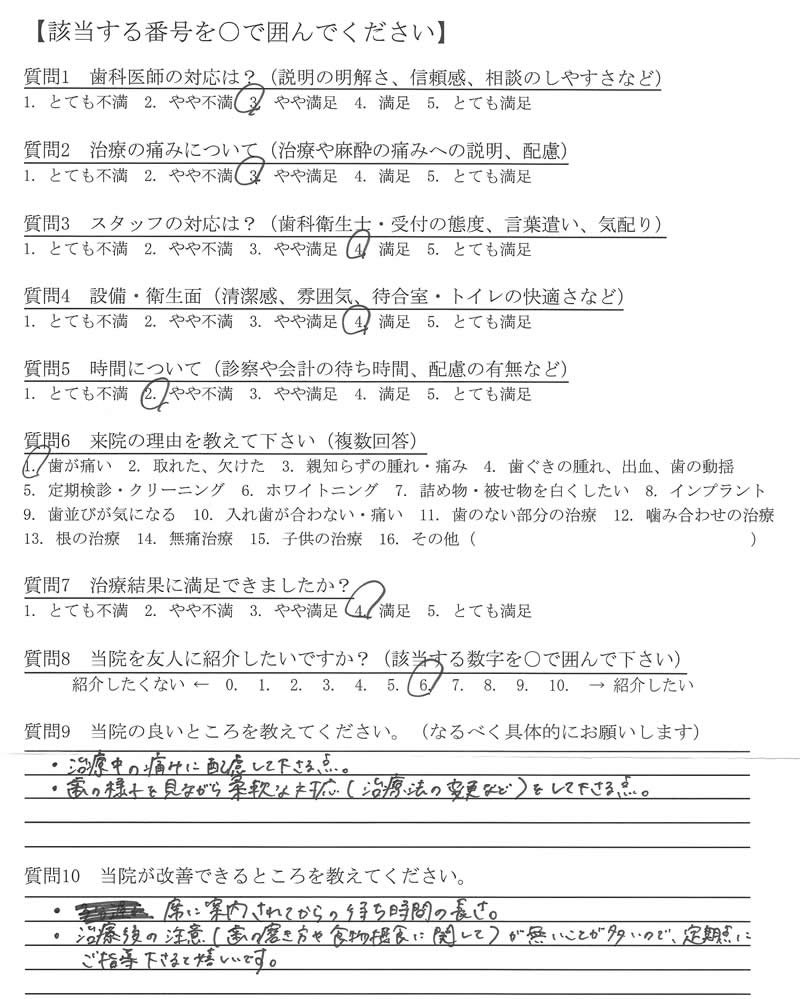 【該当する番号を○で囲んでください】
質問1 歯科医師の対応は？（説明の明解さ、信頼感、相談のしやすさなど）
1. とても不満 2. やや不満 3. やや満足 4. 満足 5. とても満足
質問2 治療の痛みについて（治療や麻酔の痛みへの説明、配慮）
1. とても不満 2. やや不満 3. やや満足 4. 満足 5. とても満足
質問3 スタッフの対応は？（歯科衛生士・受付の態度、言葉遣い、気配り）
1. とても不満 2. やや不満 3. やや満足 4. 満足 5. とても満足
質問4 設備・衛生面（清潔感、雰囲気、待合室・トイレの快適さなど）
1. とても不満 2. やや不満 3. やや満足 4. 満足 5. とても満足
質問5 時間について（診察や会計の待ち時間、配慮の有無など）
1. とても不満 2. やや不満 3. やや満足 4. 満足 5. とても満足
質問6 来院の理由を教えて下さい（複数回答）
1. 歯が痛い 2. 取れた、欠けた 3. 親知らずの腫れ・痛み 4. 歯ぐきの腫れ、出血、歯の動揺
5. 定期検診・クリーニング 6. ホワイトニング 7. 詰め物・被せ物を白くしたい 8. インプラント
9. 歯並びが気になる 10. 入れ歯が合わない・痛い 11. 歯のない部分の治療 12. 噛み合わせの治療
13. 根の治療 14. 無痛治療 15. 子供の治療 16. その他（ ）
質問7 治療結果に満足できましたか？
1. とても不満 2. やや不満 3. やや満足 4. 満足 5. とても満足
質問8 当院を友人に紹介したいですか？（該当する数字を○で囲んで下さい）
紹介したくない ← 0. 1. 2. 3. 4. 5. 6. 7. 8. 9. 10. → 紹介したい
質問9 当院の良いところを教えてください。（なるべく具体的にお願いします）
・治療中の痛みに配慮して下さる点。
・歯の様子を見ながら柔軟な対応（治療法の変更など）をして下さる点。
質問10 当院が改善できるところを教えてください。
・ 席に案内されてからの待ち時間の長さ。
・治療後の注意（歯の磨き方や食物摂食に関して）が無いことが多いので、定期点に
ご指導下さると嬉しいです。